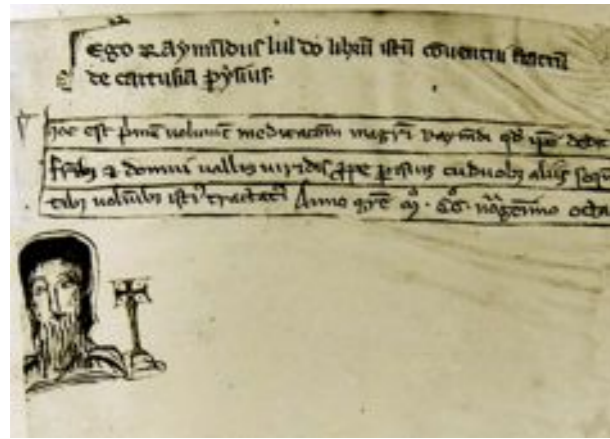 Ego Raymūdus lul do librū istū conventui fratrū
de cartusia pysius.
hoc est pimū volumē meditacionū magri raymūdi qd ipse dedit
fribȝ et domui vallis viridis ppe parisius cū duobȝ aliis sequē
tibȝ voluībȝ isti tractatȝ Anno gre mͦ. ccͦ. nagesimo octa